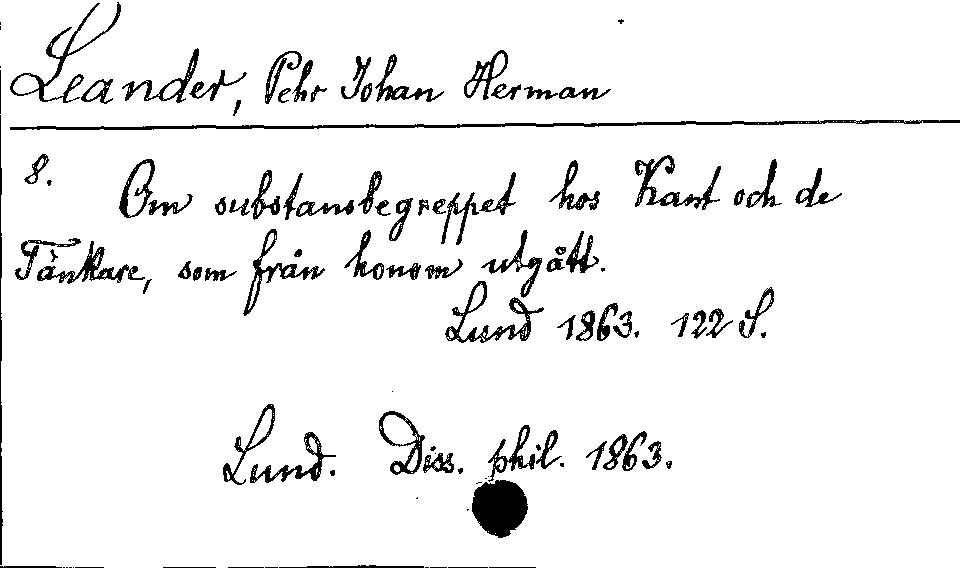 Leander, Pehr Johan Herman
8.
Om substansbegreppet hos Kant och de
Tänkare, som från honom utgått.
Lund 1863. 122 S.
Lund. Diss. phil. 1863.